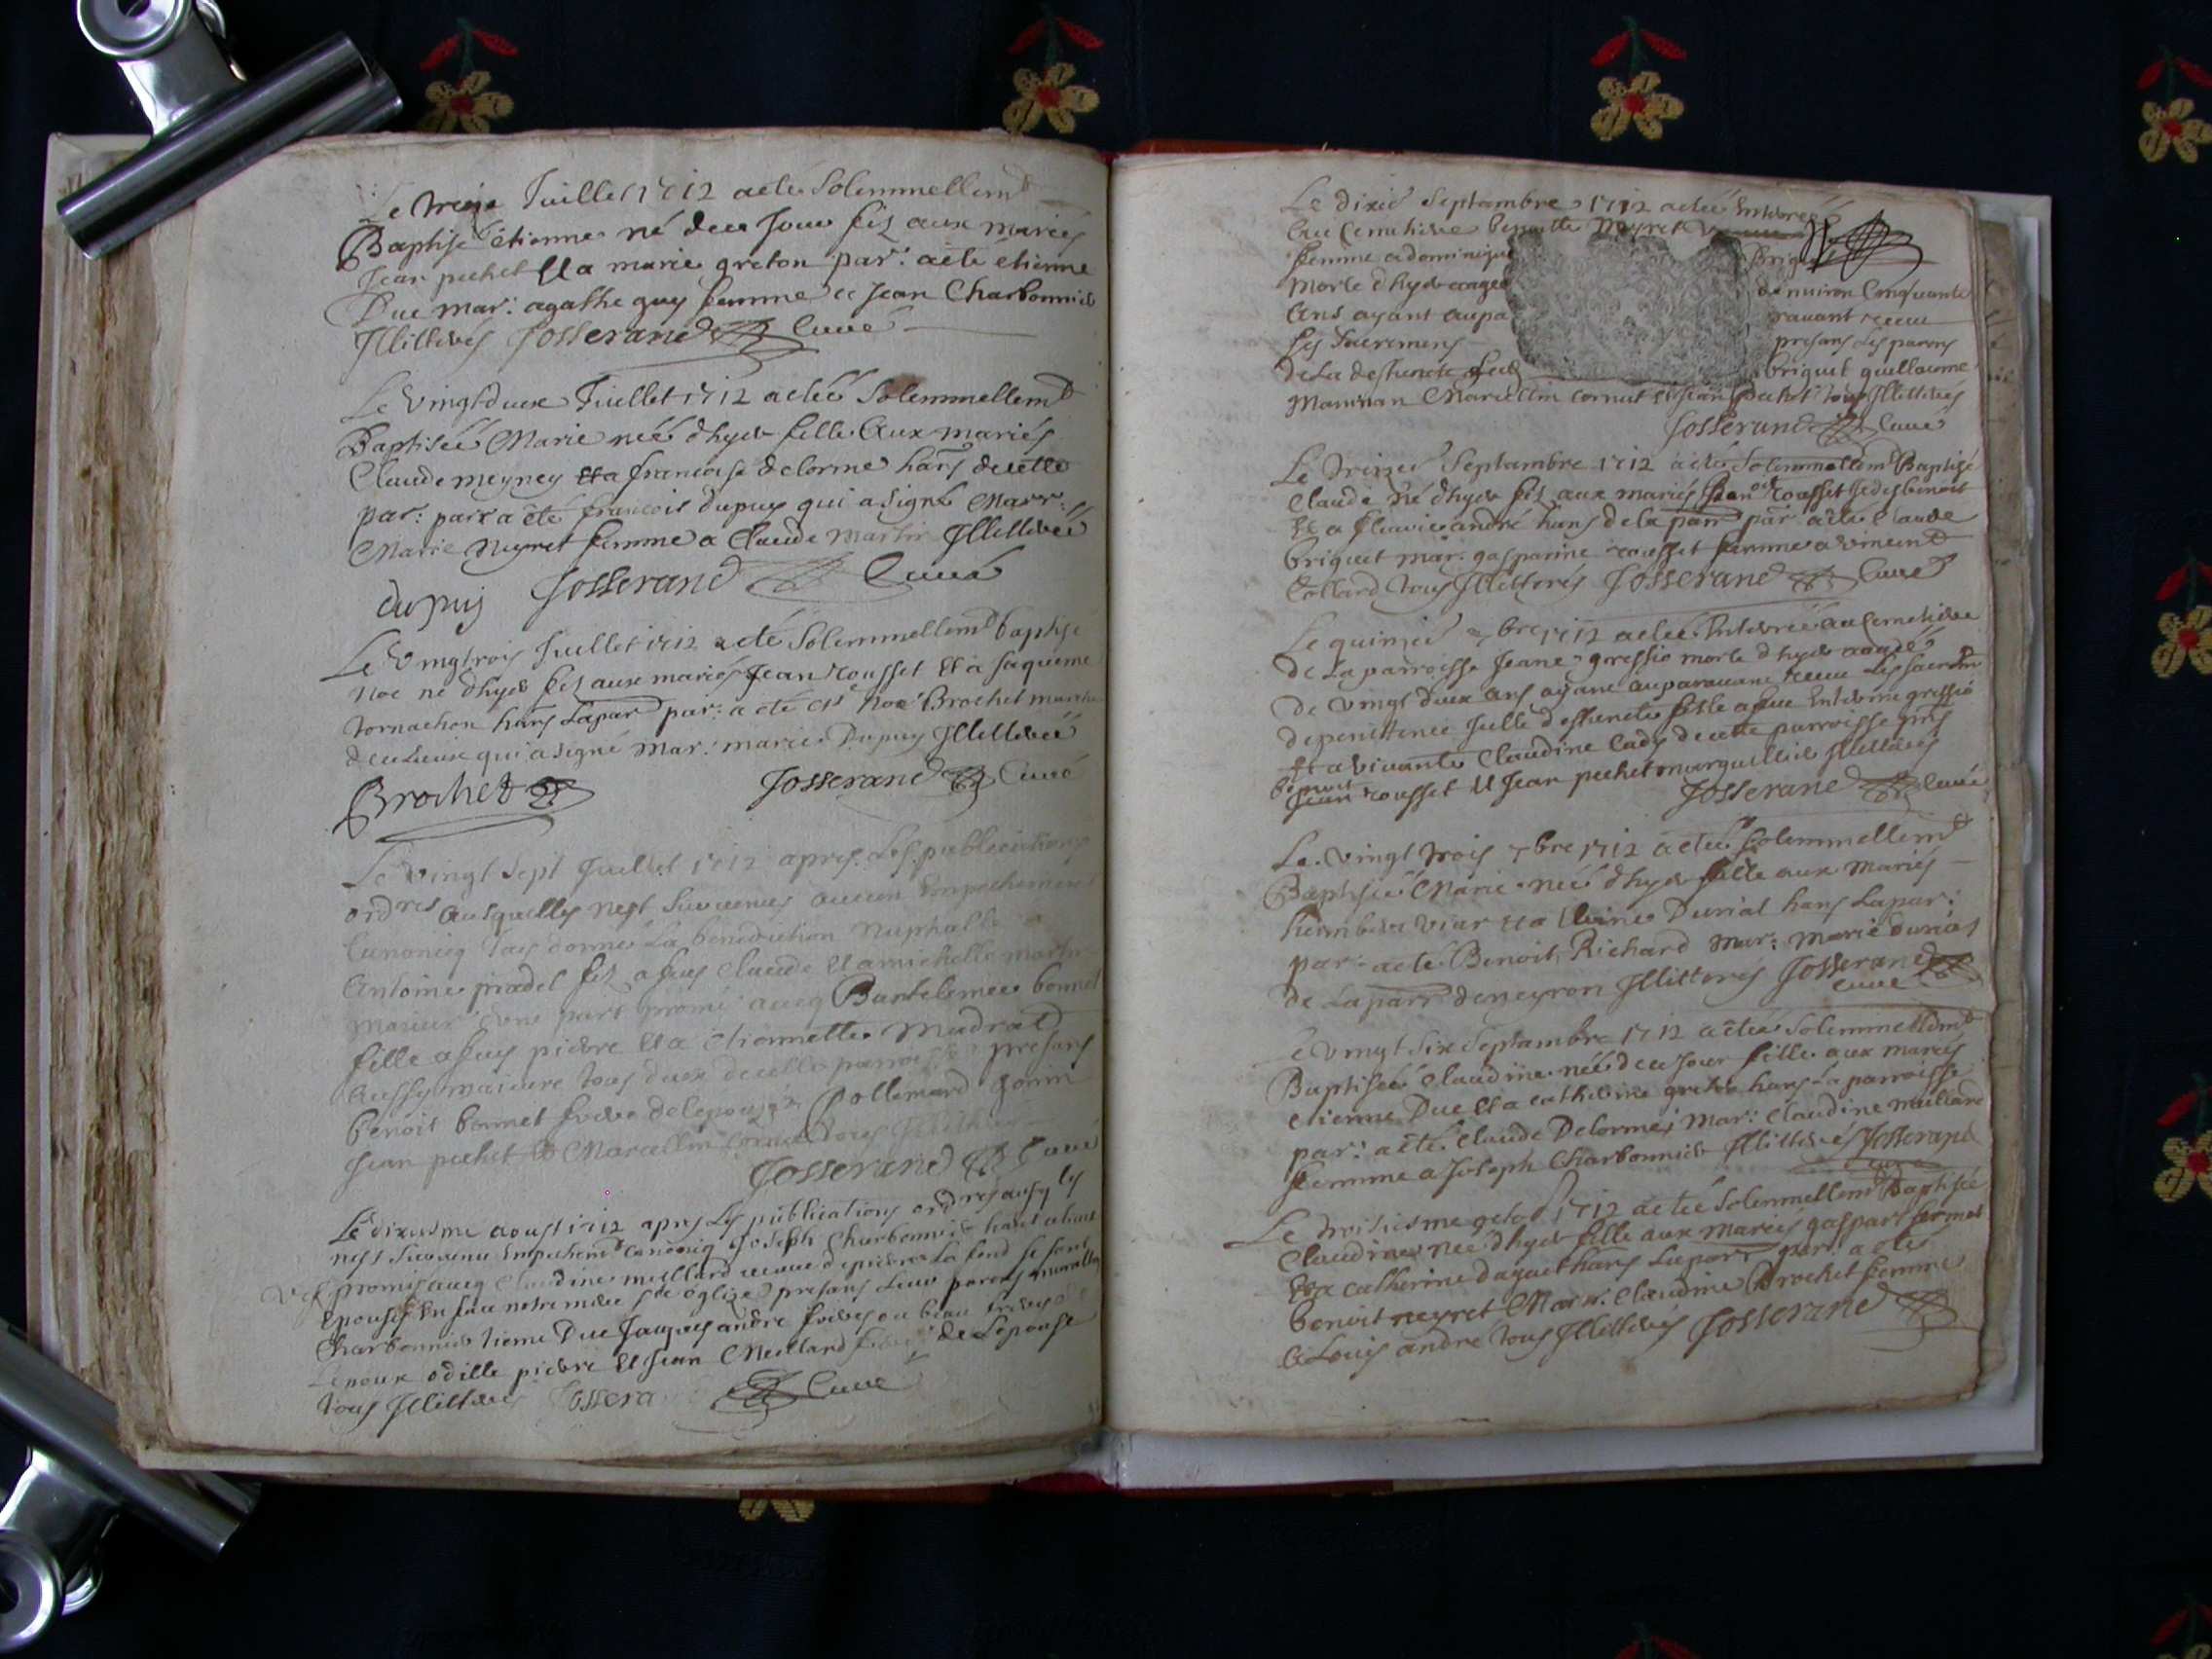 Le treize Juillet 1712 a eté Solemnellemt
Baptisé étienne né de ce Jour fils aux mariés
Jean pechet Et a marie greton par: a eté étienne
Duc mar: agathe guy femme a Jean Charbonnier
Illitterés Josserand Curé
Le Vingtdeux Juillet 1712 a eteé Solemnellemt
Baptisée Marie neé dhyer fille Aux mariés
Claude meyney Et a francoise delorme hans de cette
par: parr a eté francois dupuy qui a signé Marr:
Marie Neyret femme a Claude Martin Illitterée
dupuy Josserand Curé
Le Vingtrois Juillet 1712 a eté Solemnellemt baptisé
Noe né dhyer fils aux mariés Jean rousset Et a Jaqueme
tornachon hans Lapar par: a eté Noé Brochet
de ce Lieux qui a signé Mar: marie Dupuy Illitterée
Brochet Josserand Curé
Le Vingt Sept Juillet 1712 apres Les publications
ordres Ausquelles nest Survenus aucun Empechement
Canoniq Jay donné La benediction Nuptialle a
Antoine pradel fils a feus Claude Et a michelle martin
Majeur dune part promis avecq Bartelemie bonnet
fille a feus pierre Et a étiennette Mudrat
Aussy majeure tous deux de cette parroisse presans
benoit bonnet frere de lepouse Pollemard gonin
Jean pechet Et Marcellin Cornut tous Illitterés
Josserand Curé
Le dixiesme aoust 1712 apres Les publications ordres ausq les
nest Survenu Empechemt canoniq Joseph Charbonnier
promis avecq Claudine meilland veuve de pierre La fond se sont
Epousés En face notre mere Ste église presans Leur parens
Charbonnier tiene Duc Jacques andré freres ou beau freres de
Lepoux odille pierre Et Jean Meilland freres de Lepouse
tous Illitterés Jossera Curé
Le dixie Septambre 1712 a eteé Enterreé
Au Cemetiere benoitte Neyret
femme a dominique Briquet
Morte dhyer aageé denviron Cinquante
Ans ayant aupa ravant receu
Les Sacremens presans Les parens
de La deffuncte briquet guillaume
Mamian Marcellin cornut Et Jean pechet tous Illitterés
Josserand Curé
Le treizie Septambre 1712 a eté Solemnellemt Baptisé
Claude né dhyer fils aux mariés rousset benoit
Et a fleurie andré hans de la parr par: a eté Claude
briquet mar: gasparine rousset femme a vincent
Collard tous Illitterés Josserand Curé
Le quinzie 7bre 1712 a eteé Enterreé au Cemetiere
de La parroisse Jeane gressio morte dhyer aageé
de vingt deux ans ayant auparavant receu Les Sacremt
de penittence Icelle deffuncte fille a feu gressio
Et a vivante Claudine Cady de cette parroisse
benoit
Jean rousset Et Jean pechet marguillier Illitterés
Josserand Curé
Le vingt trois 7bre 1712 a eteé Solemnellemt
Baptisée Marie neé dhyer fille aux Mariés
humbert viar Et a Duriat hans Lapar:
par: a eté Benoit Richard Mar: Marie duriat
de Laparr de neyron Illitterés Josserand
Curé
Le vingt Six Septambre 1712 a eteé Solemnellemt
Baptisée Claudine neé de ce Jour fille aux mariés
étienne Duc Et a catherine greton hans La parroisse
par: a eté Claude Delorme Mar: Claudine meiland
femme a Joseph Charbonnier Illitterés Josserand
Le troisiesme octob 1712 a eteé Solemnellemt Baptisée
Claudine neé dhyer fille aux Mariés gaspart
Et a catherine daguet hans Laparr par: a eté
benoit neyret Marr: Claudine Brochet femme
a Louis andré tous Illitterés Josserand